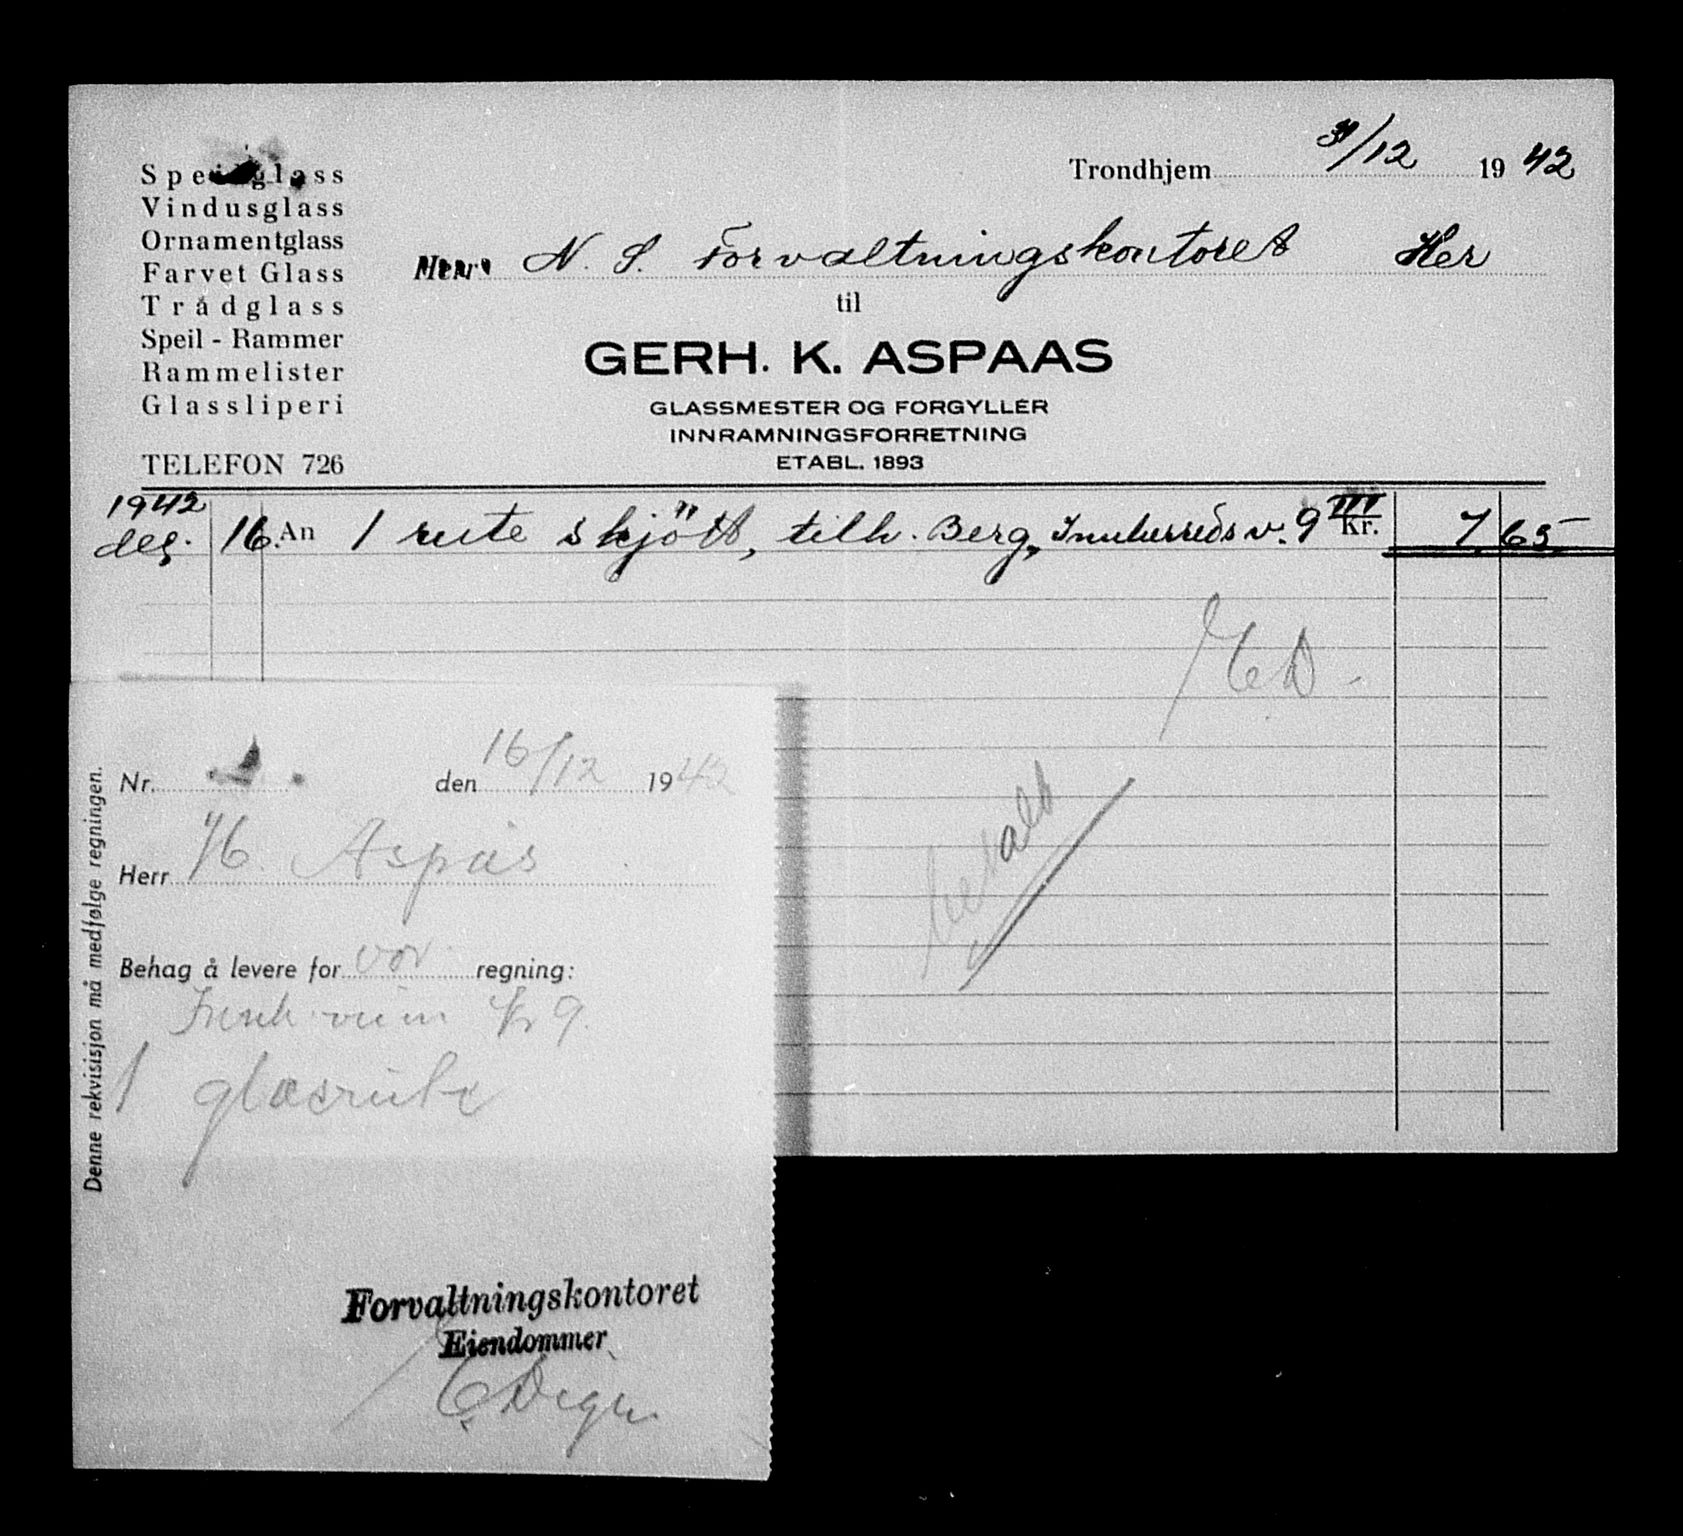 Speilglass
Vindusglass
Ornamentglass
Farvet Glass
Trådglass
Speil - Rammer
Rammelister
Glassliperi
TELEFON 726
Trondhjem 31/12 1942
N. S. Forvaltningskontoret Her
til
GERH. K. ASPAAS
GLASSMESTER OG FORGYLLER
INNRAMNINGSFORRETNING
ETABL. 1893
1942
des. 16. An 1 rute skjött, tilh. Berg, Innherredsv. 9 III Kr. 7 65
ED.
betalt
Denne rekvisisjon må medfølge regningen.
Nr. den 16/12 1942
Herr Aspås
Behag å levere for vor regning:
9.
1 glasrute
Forvaltningskontoret
Eiendommer